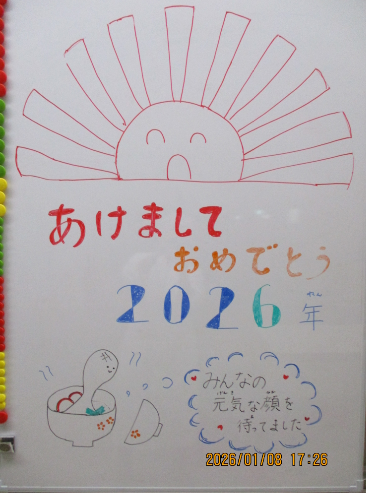 あけまして
おめでとう
2026年
みんなの
元気な顔を
待ってました
2026/01/08 17:26